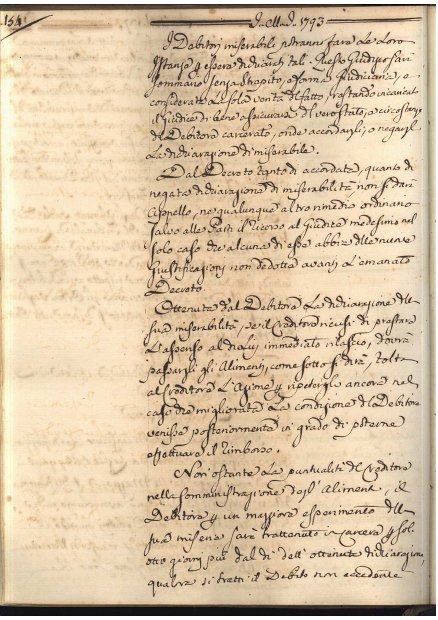 154.
I. Mad. 1793
I Debitori miserabili potranno fare le loro
Istanze per essere dichiarati tali. Questo Giudizio sarà
sommario senza strepito, e forma Giudiciaria, e
considerata la sola verità del fatto, restando incaricat
il Giudice di bene assicurarsi del vero stato, e circostanze
del Debitore carcerato, onde accordargli, o negargli
la dichiarazione di miserabile.
Dal Decreto tanto di accordata, quanto di
negata dichiarazione di miserabilità non si darà
Appello, nè qualunque altro rimedio ordinario
salvo alle Parti il ricorso al Giudice medesimo nel
solo caso che alcuna di esse abbia delle nuove
Giustificazioni non dedotte avanti l'emanato
Decreto.
Ottenuta dal Debitore la dichiarazione della
sua miserabilità, se il Creditore ricusi di prestare
l'assenso al di lui immediato rilascio, dovrà
passargli gli Alimenti, come sotto si dirà, tolta
al Creditore l'Azione per ripetergli ancora nel
caso che migliorata la condizione del Debitore
venisse posteriormente in grado di poterne
effettuare il rimborso.
Non ostante la puntualità del Creditore
nella somministrazione degl' Alimenti, il
Debitore per un maggiore esperimento della
sua miseria sarà trattenuto in Carcere per soli
otto giorni più dal dì dell' ottenuta dichiarazione,
qualora si tratti di Debito non eccedente